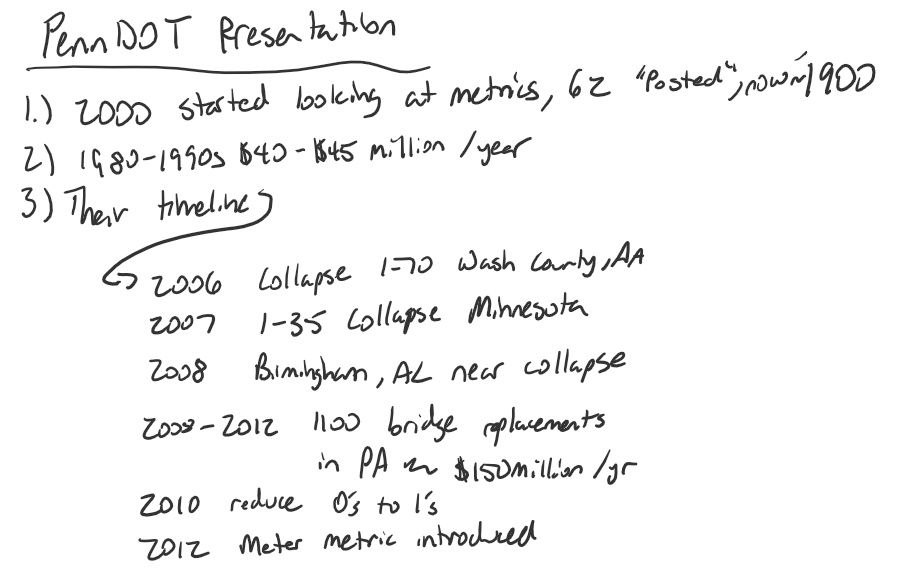 PennDOT Presentation
1.) 2000 started looking at metrics, 62 "Posted", now ~1900
2) 1980-1990s $40-$45 million /year
3) Their timeline
2006 Collapse I-70 Wash County, PA
2007 I-35 Collapse Minnesota
2008 Birmingham, AL near collapse
2008-2012 1100 bridge replacements
in PA ~ $150 million /yr
2010 reduce 0's to 1's
2012 Meter metric introduced